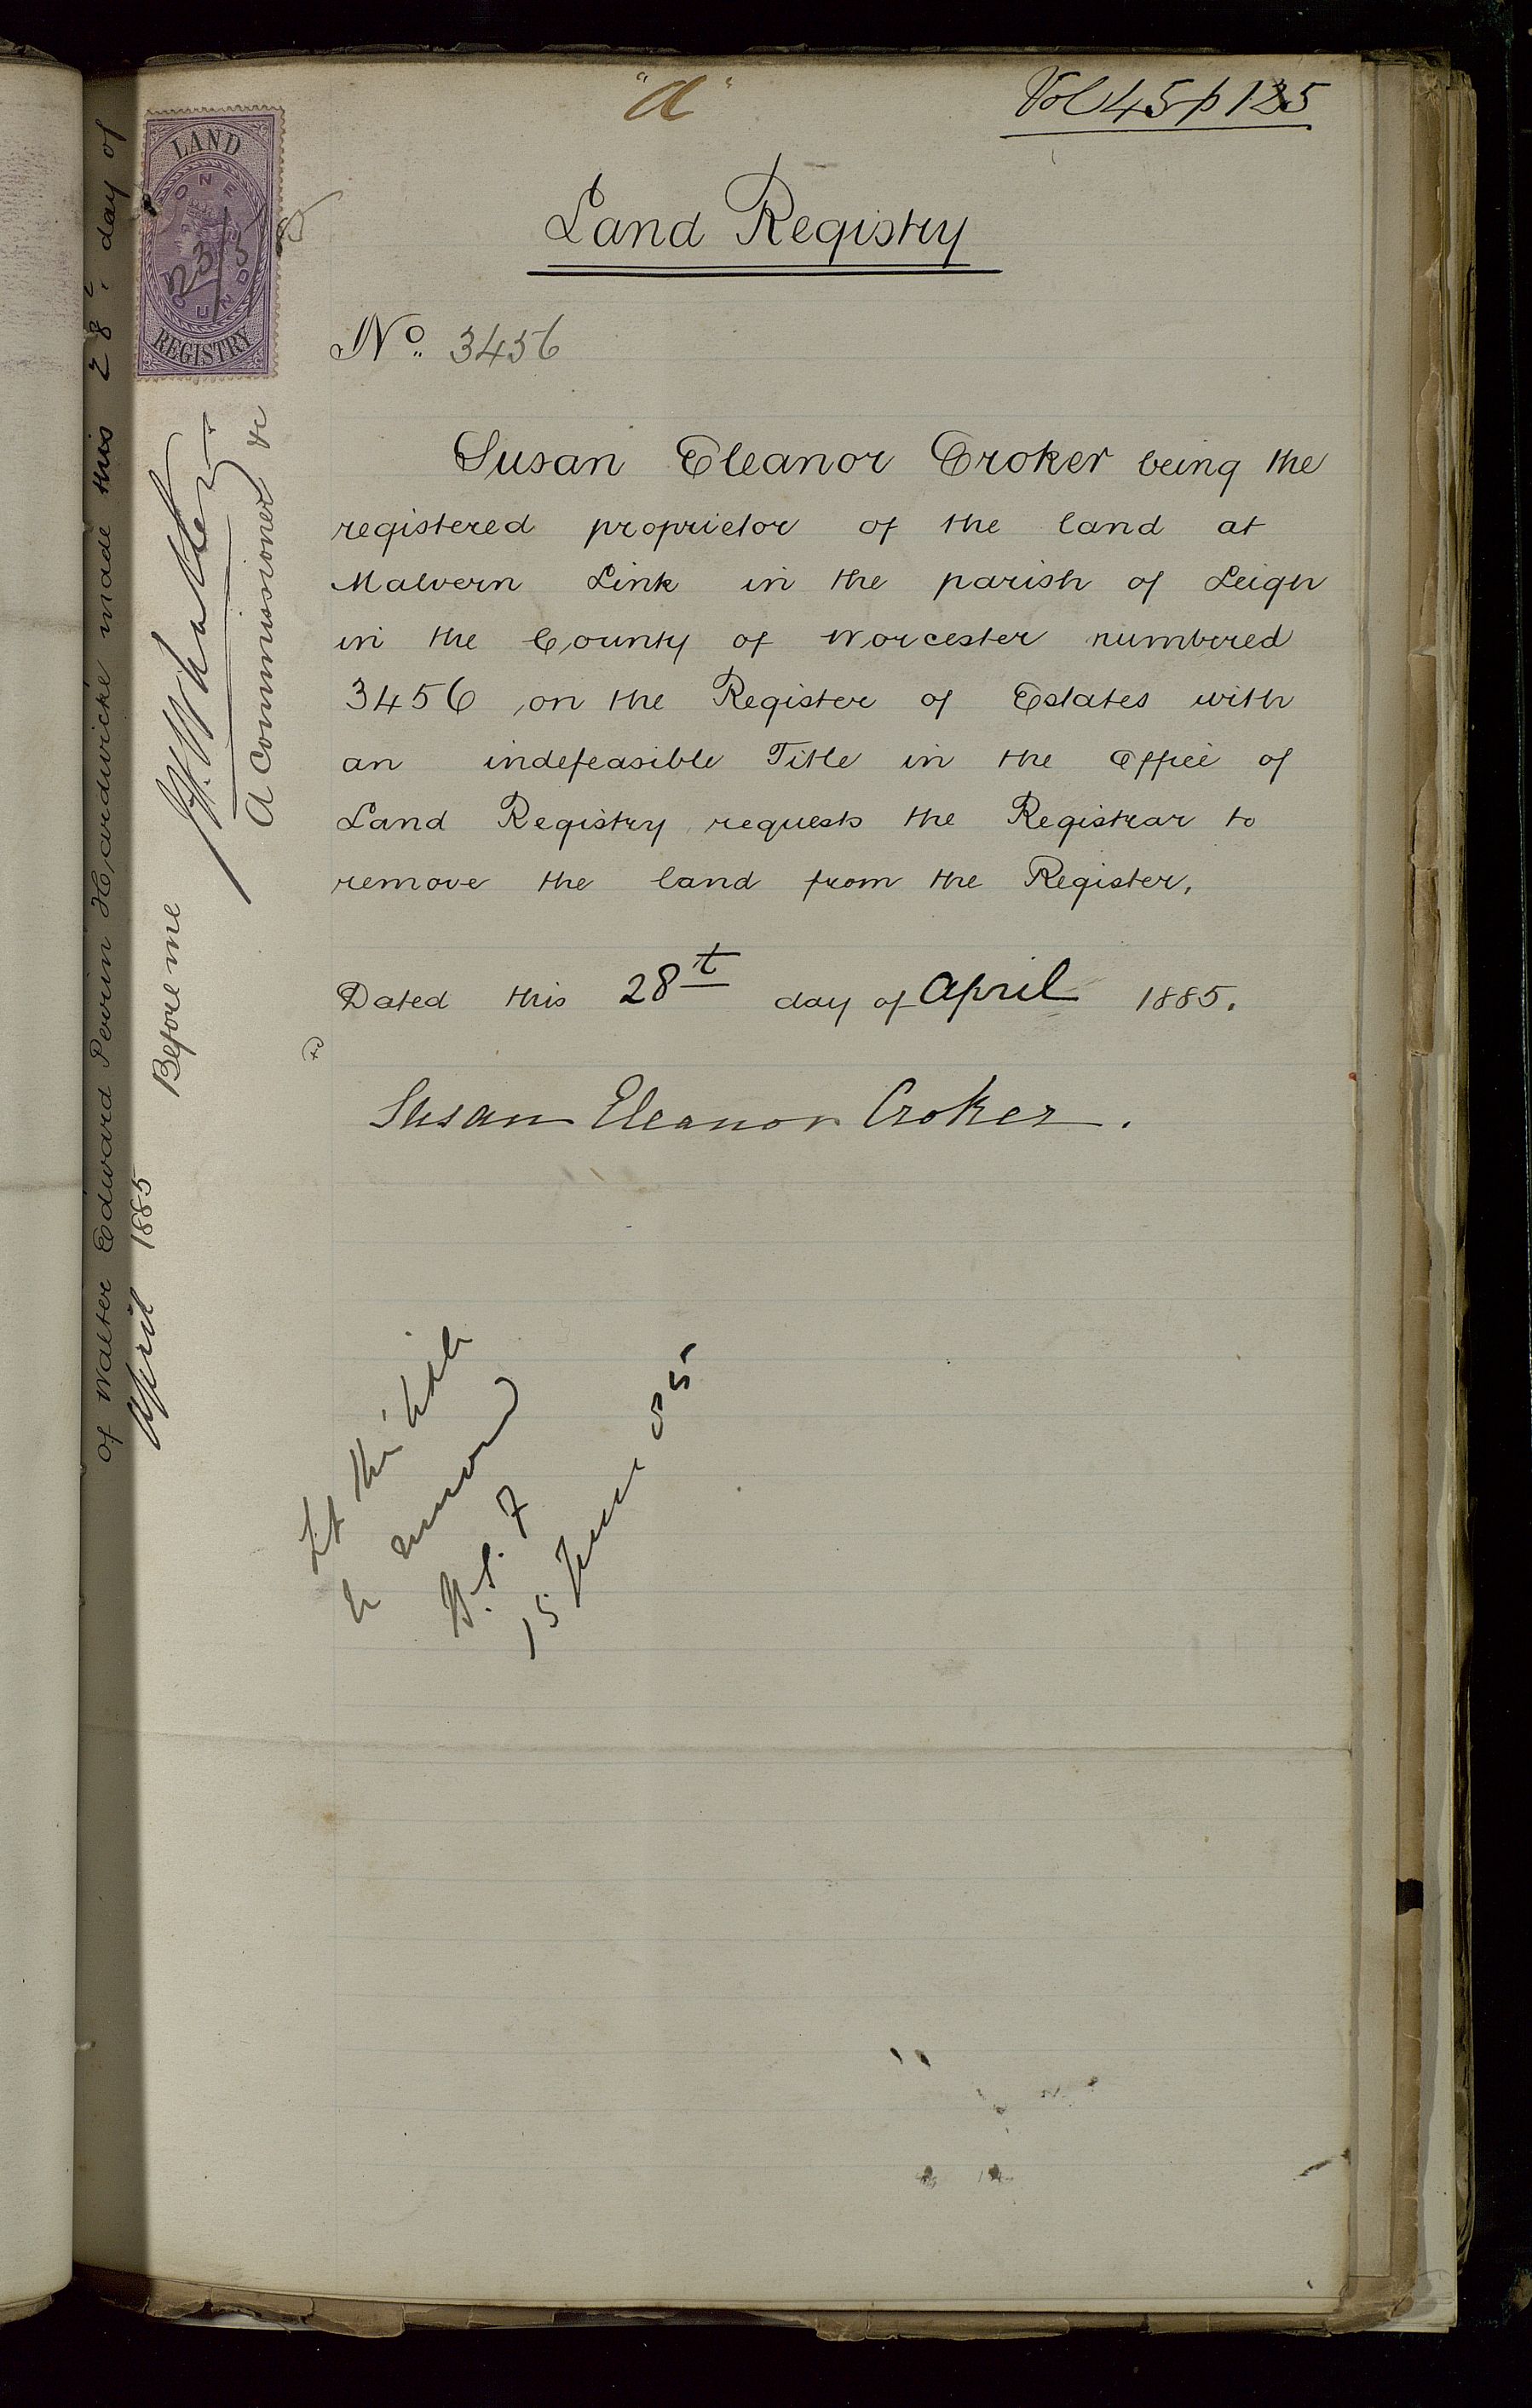 "A"
Vol 45 p 125
Land Registry
No. 3456
Susan Eleanor Croker being the
registered proprietor of the land at
Malvern Link in the parish of Leigh
in the County of Worcester numbered
3456 on the Register of Estates with
an indefeasible Title in the Office of
Land Registry requests the Registrar to
remove the land from the Register.
Dated this 28t day of April 1885.
Susan Eleanor Croker.
Let the title
be removed
15 June 85
LAND
ONE
POUND
REGISTRY
23/5/85
of Walter Edward Perrin Hardwicke made this 28t day of
April 1885 Before me
A Commissioner &c